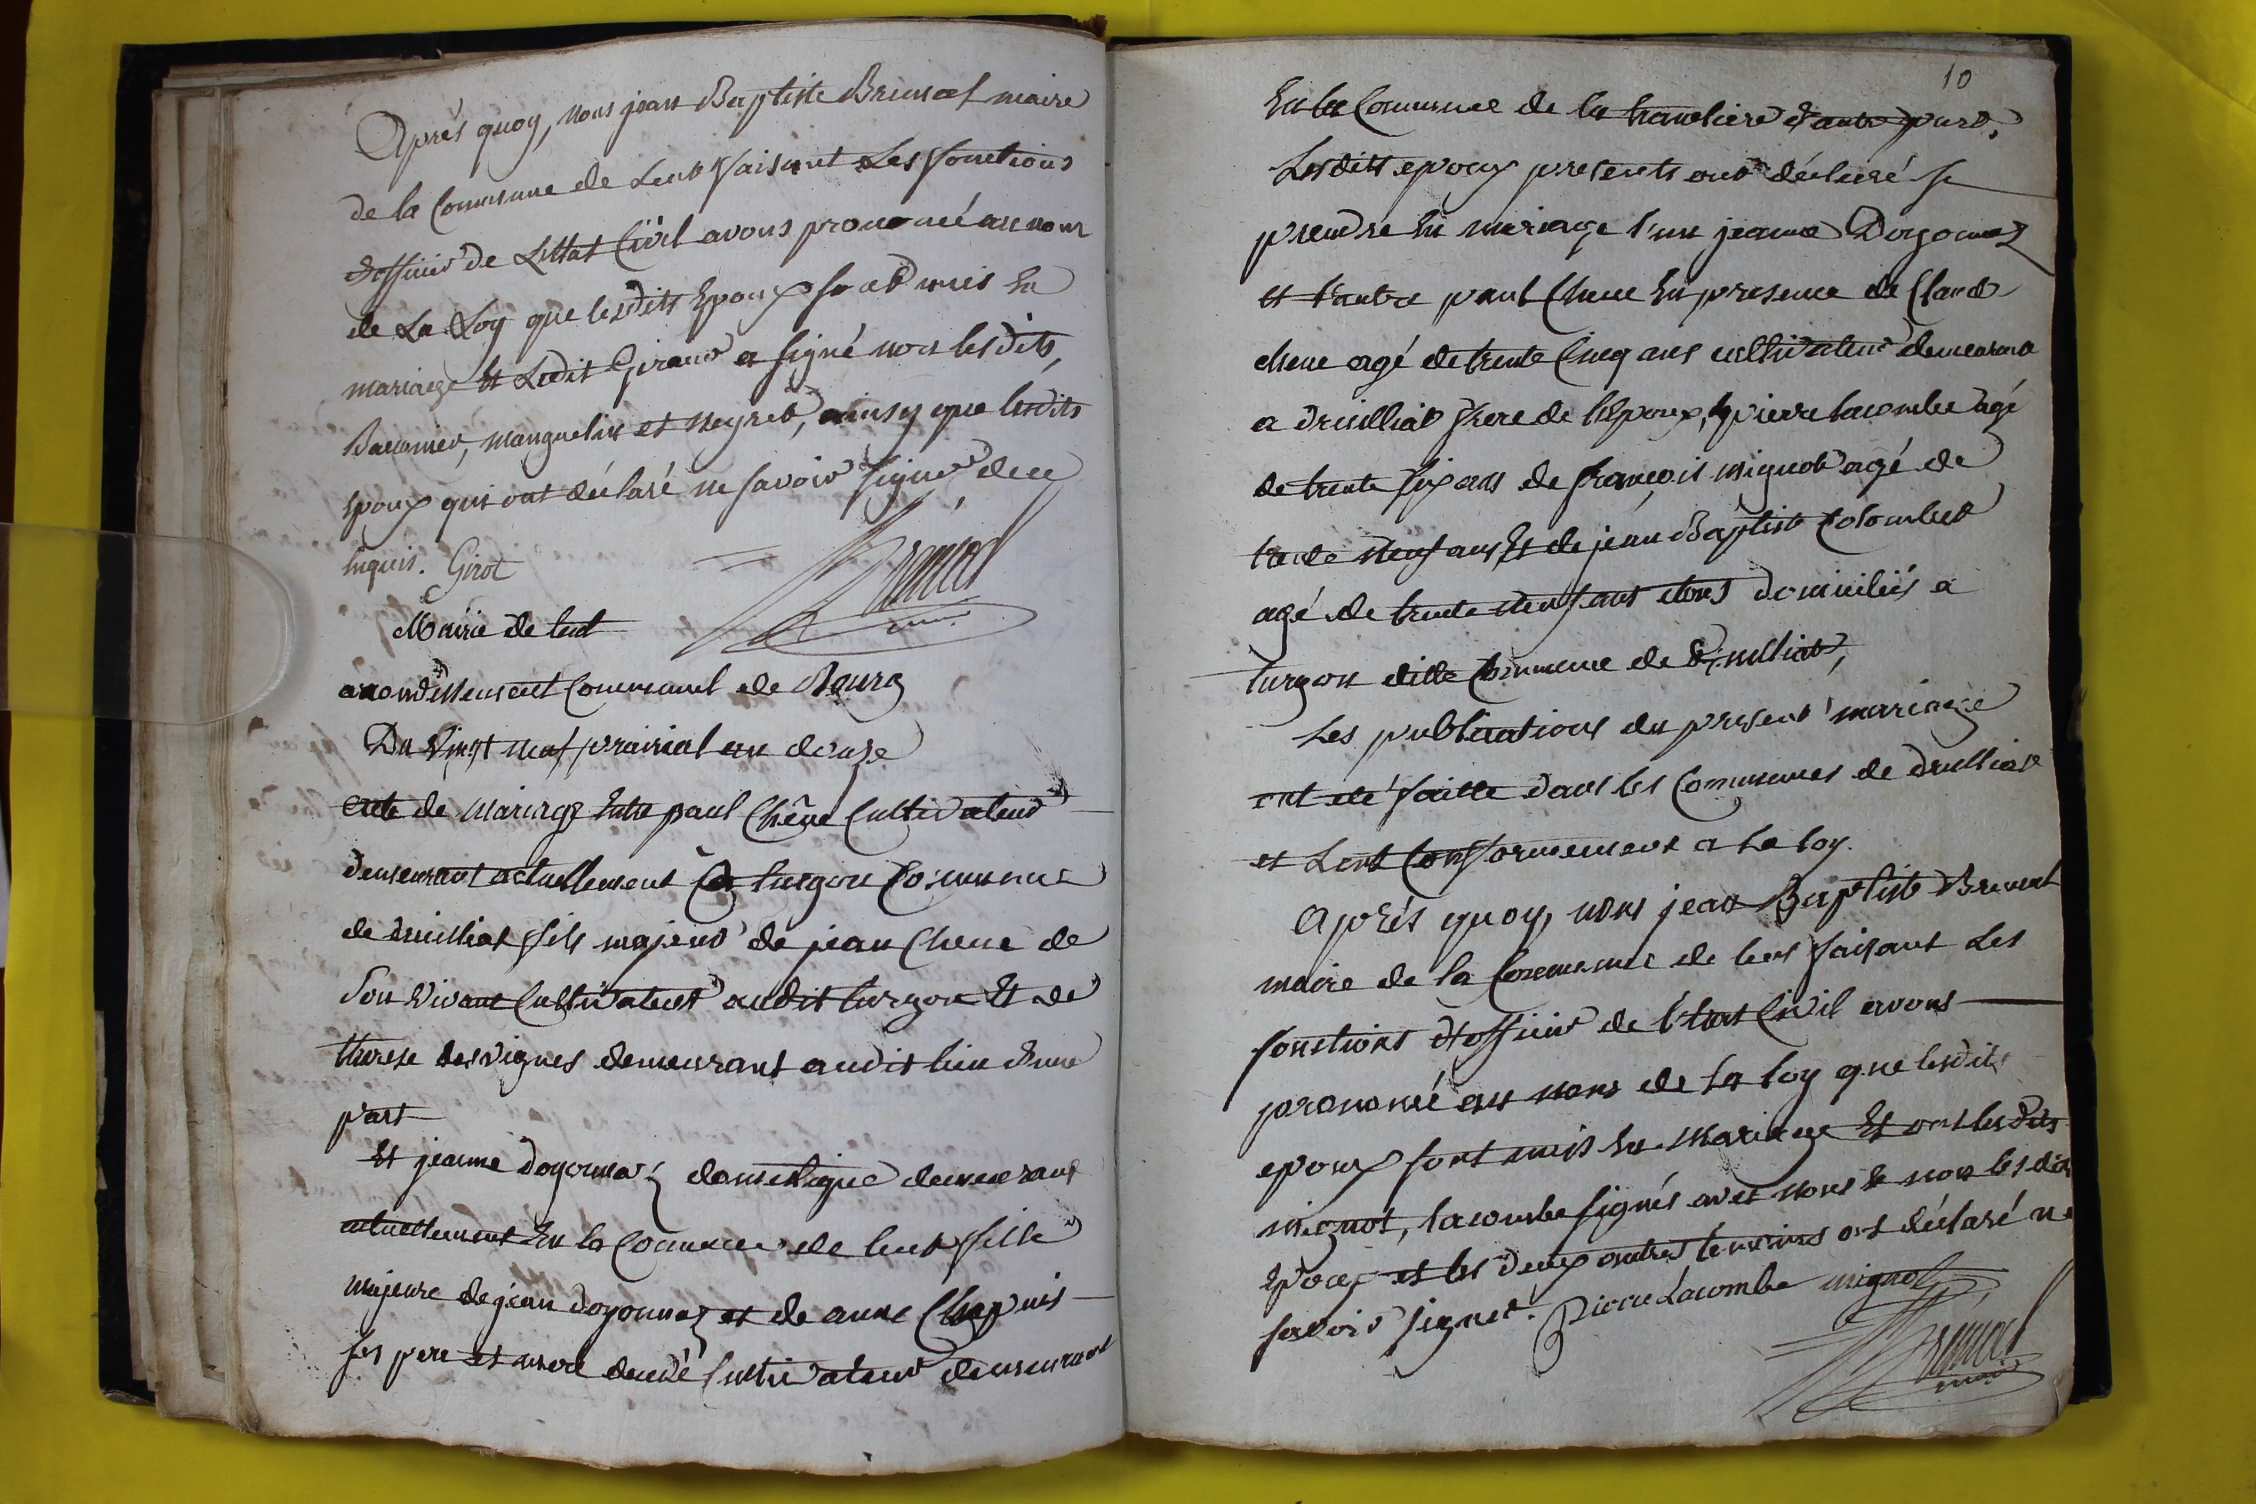 Après quoy, nous jean Baptiste Brunet maire
de la Commune de Lent faisant Les fonctions
d'officier de L'Ettat Civil avons prononcé au nom
de La Loy que lesdits Epoux sont unis En
mariage Et Ledit Giraud a signé non lesdits
manguelin et Neyret, ainsy que lesdits
Epoux qui ont déclaré ne savoir signer de ce
Enquis. Girot
Mairie de lent
arondissement Communal de Bourg
Du Vingt neuf prairial an douze
acte de Mariage Entre paul Chêne Cultivateur
demeurant actuellement a turgon Commune
de druilliat fils majeur de jean Chene de
Son Vivant Cultivateur audit turgon Et de
therese desvignes demeurant audit lieu d'une
part
Et jeanne doyonnaz domestique demeurant
actuellement En la Commune de lent fille
majeure de jean doyonnaz et de anne Chapuis
ses pere et mere décédé Cultivateur demeurant
10
En la Commune de la tranclière d'autre part.
Lesdits epoux presents ont déclaré se
prendre En mariage l'un jeanne Doyonnaz
et l'autre paul Chene En presence de Claude
chene agé de trente Cinq ans cultivateur demeurant
a druilliat frere de l'Epoux, de pierre lacombe agé
de trente six ans de françois mignot agé de
trente neuf ans Et de jean Baptiste Colombet
agé de trente neuf ans tous domiciliés a
turgon ditte Commune de druilliat,
Les publications du present mariage
ont été faitte dans les Communes de drulliat
et Lent Conformement a La loy.
Après quoy, nous jean Baptiste Brunet
maire de la Commune de lent faisant Les
fonctions d'officier de l'état Civil avons
prononcé au nom de la loy que lesdits
epoux sont unis En Mariage Et ont lesdits
mignot, lacombe signés avec nous & non lesdits
Epoux et les deux autres temoins ont déclaré ne
savoir signer. Pierre Lacombe mignot
Brunet
maire